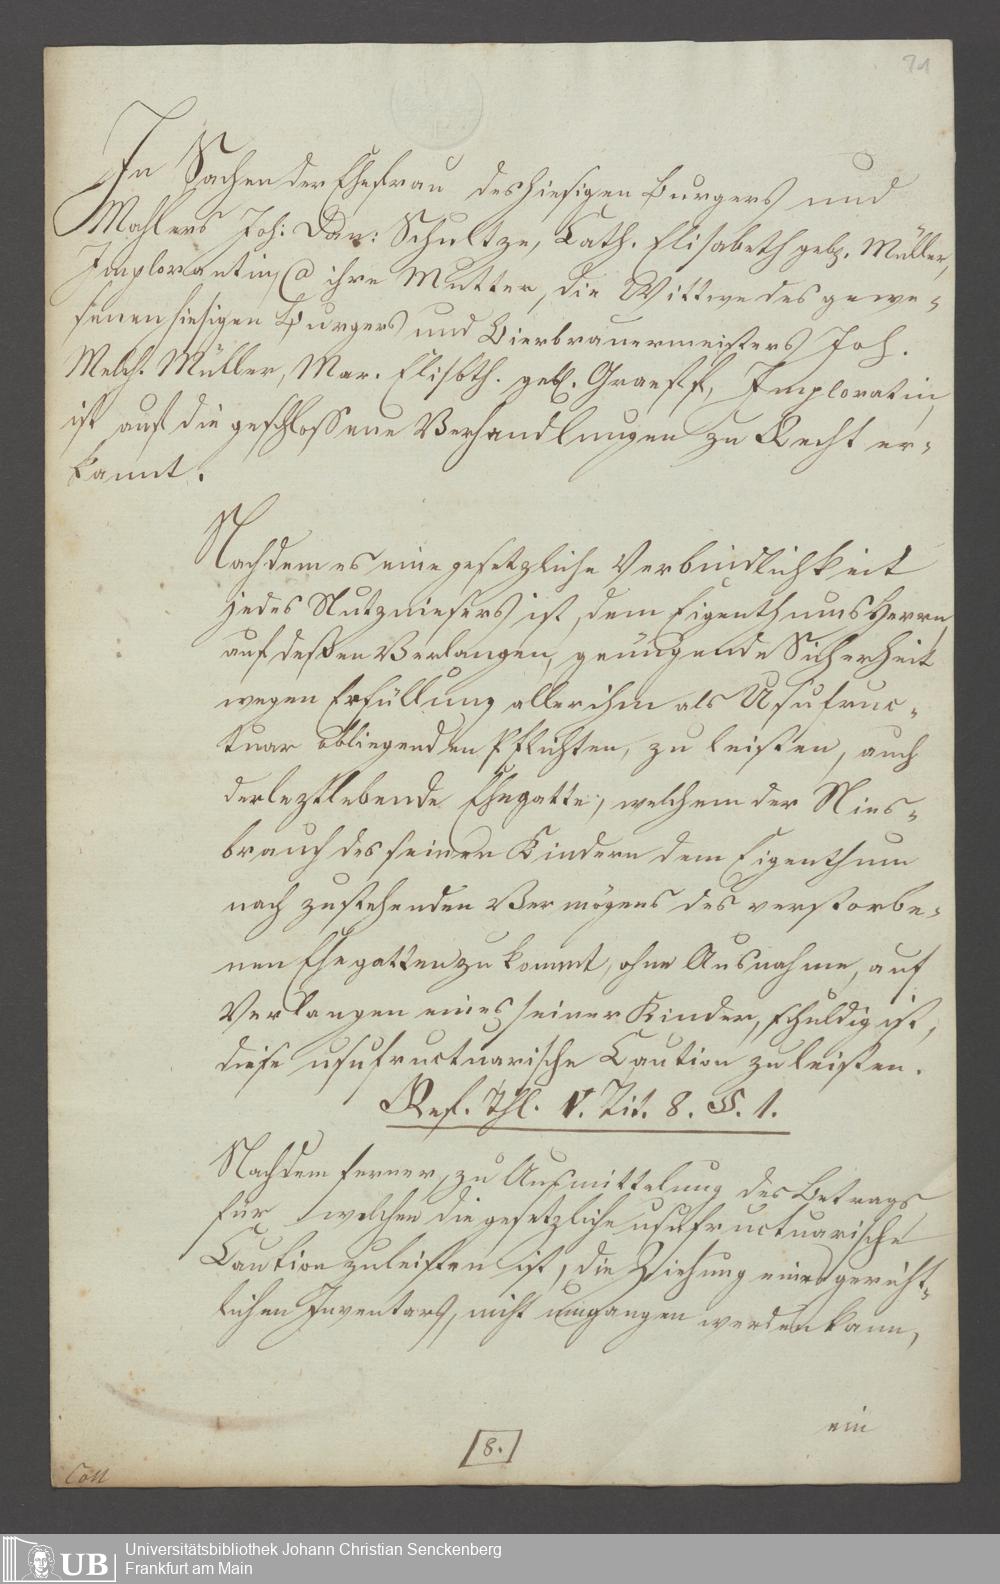 71
In Sachen der Ehefrau des hiesigen Burgers und
Mahlers Joh: Dan: Schultze, Cath. Elisabeth geb. Müller,
Implorantin, @ ihre Mutter, die Wittwe des gewe-
senen hiesigen Burgers und Bierbrauermeisters Joh.
Melch. Müller, Mar. Elisbth. geb. Graeff, Imploratin,
ist auf die geschlossene Verhandlungen zu Recht er-
kannt.
Nachdem es eine gesetzliche Verbindlichkeit
jedes Nutzniesers ist, dem Eigenthums Herrn,
auf deßen Verlangen, genügende Sicherheit
wegen Erfüllung aller ihm als Usufruc-
tuar obliegenden Pflichten, zu leisten, auch
der leztlebende Ehegatte, welchem der Nies-
brauch des seinen Kindern dem Eigenthum
nach zustehenden Vermögens des verstorbe-
nen Ehegatten zukommt, ohne Ausnahme, auf
Verlangen eines seiner Kinder, schuldig ist,
diese usufructuarische Caution zu leisten.
Ref. Thl. V. Tit. 8. §. 1.
Nachdem ferner, zu Ausmittelung des Betrags
für welchen die gesetzliche usufructuarische
Caution zu leisten ist, die Ziehung eines gericht-
lichen Inventars, nicht umgangen werden kann,
ein
8.
Coll
UB Universitätsbibliothek Johann Christian Senckenberg
Frankfurt am Main